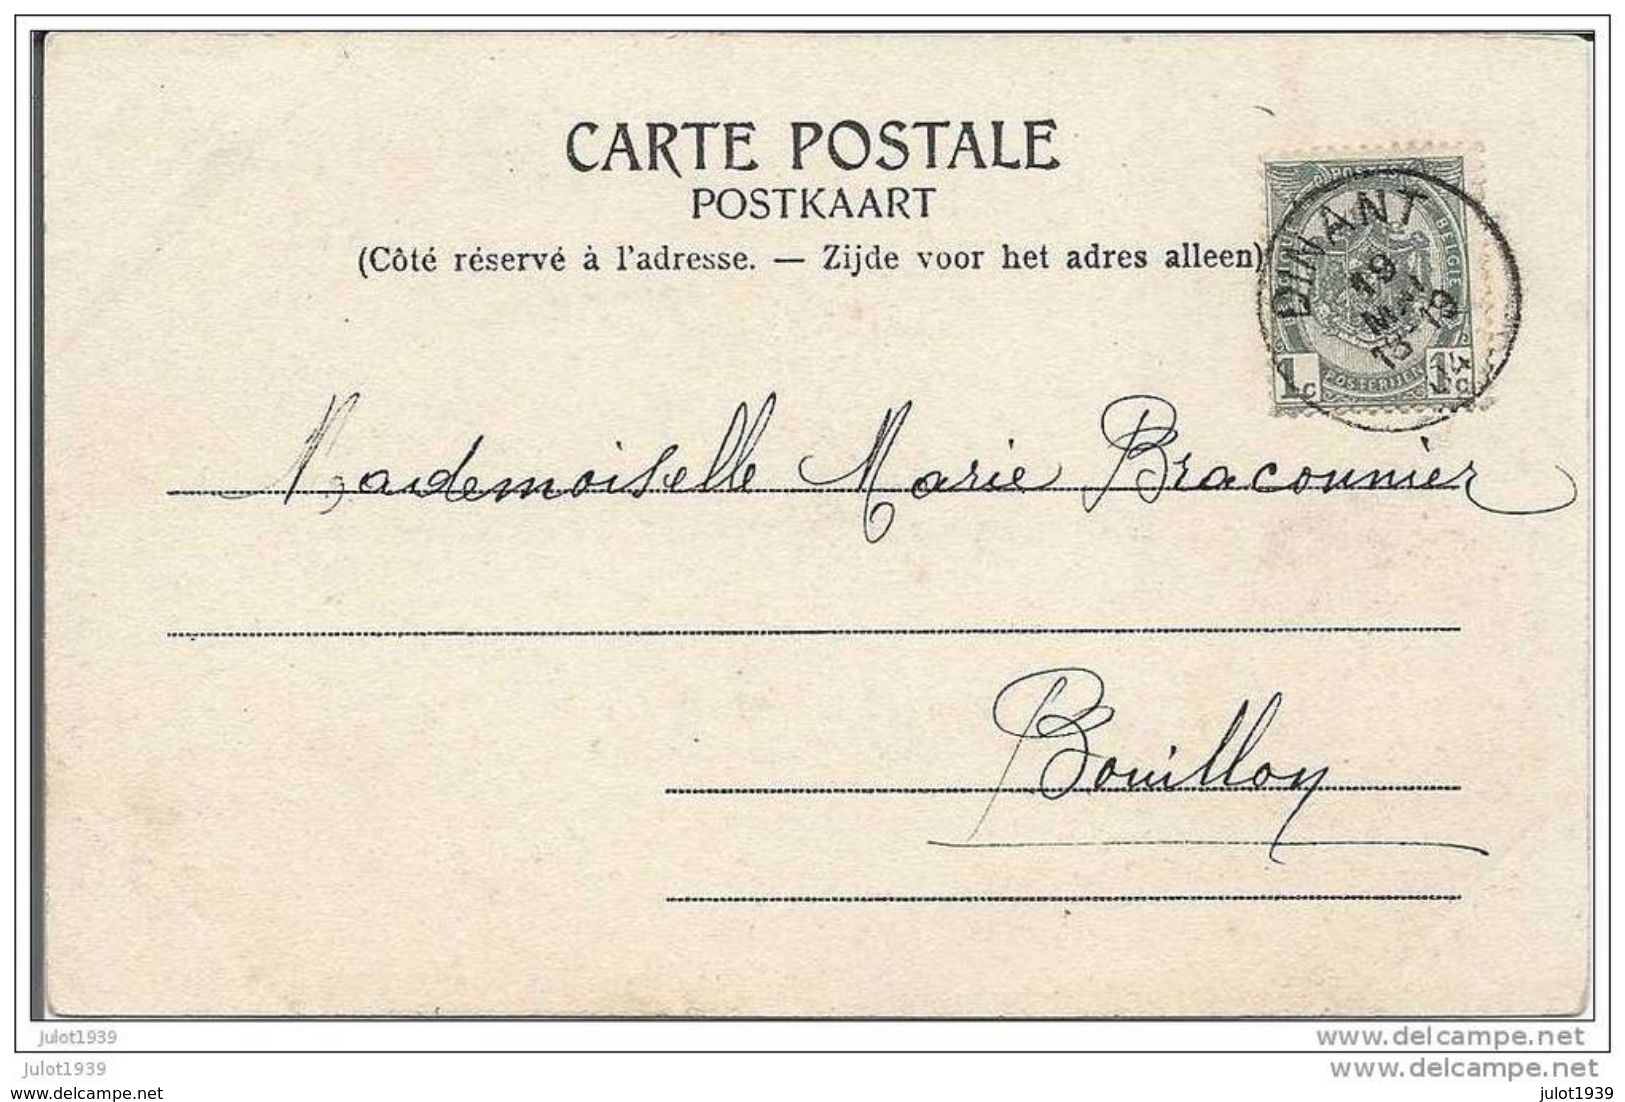 CARTE POSTALE
POSTKAART
(Côté réservé à l'adresse. — Zijde voor het adres alleen)
DINANT
19
1c 1c
POSTERIJEN
BELGIE
Mademoiselle Marie Braconnier
Bouillon
julot1939
delcampe.net
julot1939
delcampe.net
julot1939
julot1939